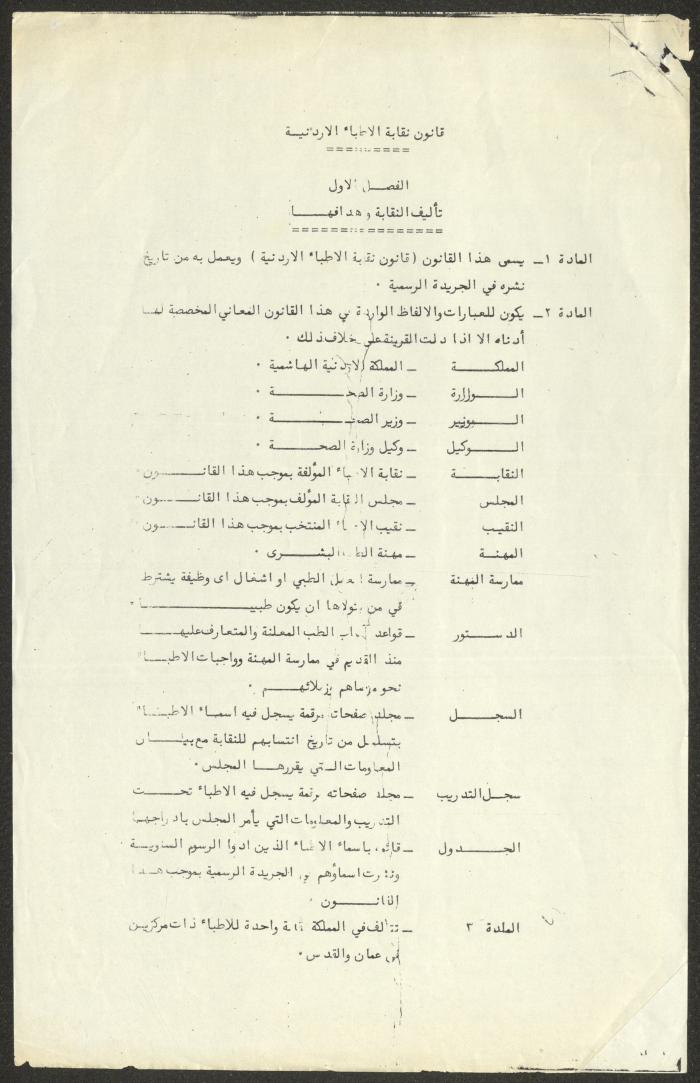 قانون نقابة الاطباء الاردنية
الفصل الاول
تأليف النقابة وهدافها
المادة ١ـ يسمى هذا القانون (قانون نقابة الاطباء الاردنية) ويعمل به من تاريخ
نشره في الجريدة الرسمية ٠
المادة ٢ـ يكون للعبارات والالفاظ الواردة في هذا القانون المعاني المخصصة لها
أدناه الا اذا دلت القرينة على خلاف ذلك ٠
المملكة ـ المملكة الاردنية الهاشمية ٠
الوزارة ـ وزارة الصحة ٠
الوزير ـ وزير الصحة ٠
الوكيل ـ وكيل وزارة الصحة ٠
النقابة ـ نقابة الاطباء المؤلفة بموجب هذا القانون ٠
المجلس ـ مجلس النقابة المؤلف بموجب هذا القانون ٠
النقيب ـ نقيب الاطباء المنتخب بموجب هذا القانون ٠
المهنة ـ مهنة الطب البشرى ٠
ممارسة المهنة ـ ممارسة العمل الطبي او اشغال اى وظيفة يشترط
في من يتولاها ان يكون طبيبا ٠
الدستور ـ قواعد آداب الطب المعلنة والمتعارف عليها
منذ القديم في ممارسة المهنة وواجبات الاطباء
نحو مرضاهم وزملائهم ٠
السجل ـ مجلد صفحاته مرقمة يسجل فيه اسماء الاطباء
بتسلسل من تاريخ انتسابهم للنقابة مع بيان
المعلومات التي يقررها المجلس ٠
سجل التدريب ـ مجلد صفحاته مرقمة يسجل فيه الاطباء تحت
التدريب والمعلومات التي يأمر المجلس بادراجها
الجدول ـ قائمة باسماء الاطباء الذين ادوا الرسوم السنوية
ونشرت اسماؤهم في الجريدة الرسمية بموجب هذا
القانون ٠
المادة ٣ ـ تتألف في المملكة نقابة واحدة للاطباء ذات مركزين
في عمان والقدس ٠